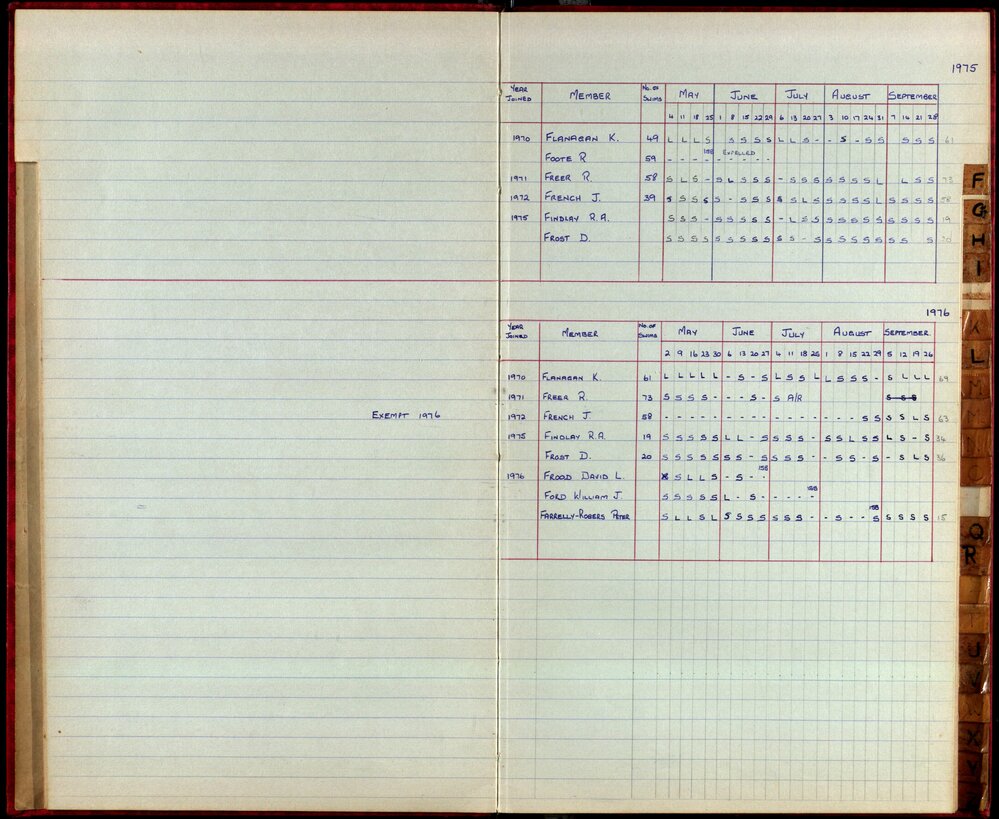 1975
YEAR JOINED MEMBER No. OF SWIMS MAY JUNE JULY AUGUST SEPTEMBER
4 11 18 25 1 8 15 22 29 6 13 20 27 3 10 17 24 31 7 14 21 28
1970 FLANAGAN K. 49 L L L S S S S S L L S - - S - S S S S S 61
FOOTE R 59 - - - - 15B EXPELLED - - - - -
1971 FREER R. 58 S L S - S L S S S - S S S S S S S L L S S 73
1972 FRENCH J. 39 S S S S S - S S S S S L S S S S S L S S S S 58
1975 FINDLAY R.A. S S S - S S S S S - L S S S S S S S S S S S 19
FROST D. S S S S S S S S S S S - S S S S S S S S S 20
1976
YEAR JOINED MEMBER No. OF SWIMS MAY JUNE JULY AUGUST SEPTEMBER
2 9 16 23 30 6 13 20 27 4 11 18 25 1 8 15 22 29 5 12 19 26
1970 FLANAGAN K. 61 L L L L L - S - S L S S L L S S S - S L L L 69
1971 FREER R. 73 S S S S - - - S - S A/R S S S
EXEMPT 1976 1972 FRENCH J. 58 - - - - - - - - - - - - - - - - S S S S L S 63
1975 FINDLAY R.A. 19 S S S S S L L - S S S S - S S L S S L S - S 34
FROST D. 20 S S S S S S S - S S S S - - S S - S - S L S 36
1976 FROOD DAVID L. S L L S - S - - 15B
FORD WILLIAM J. S S S S S L - S - - - - - 15B
FARRELLY-ROGERS PETER S L L S L S S S S S S S - - S - - S 15B S S S S 15
F
G
H
I
K
L
M
N
O
Q
R
T
U
V
W
X
Y